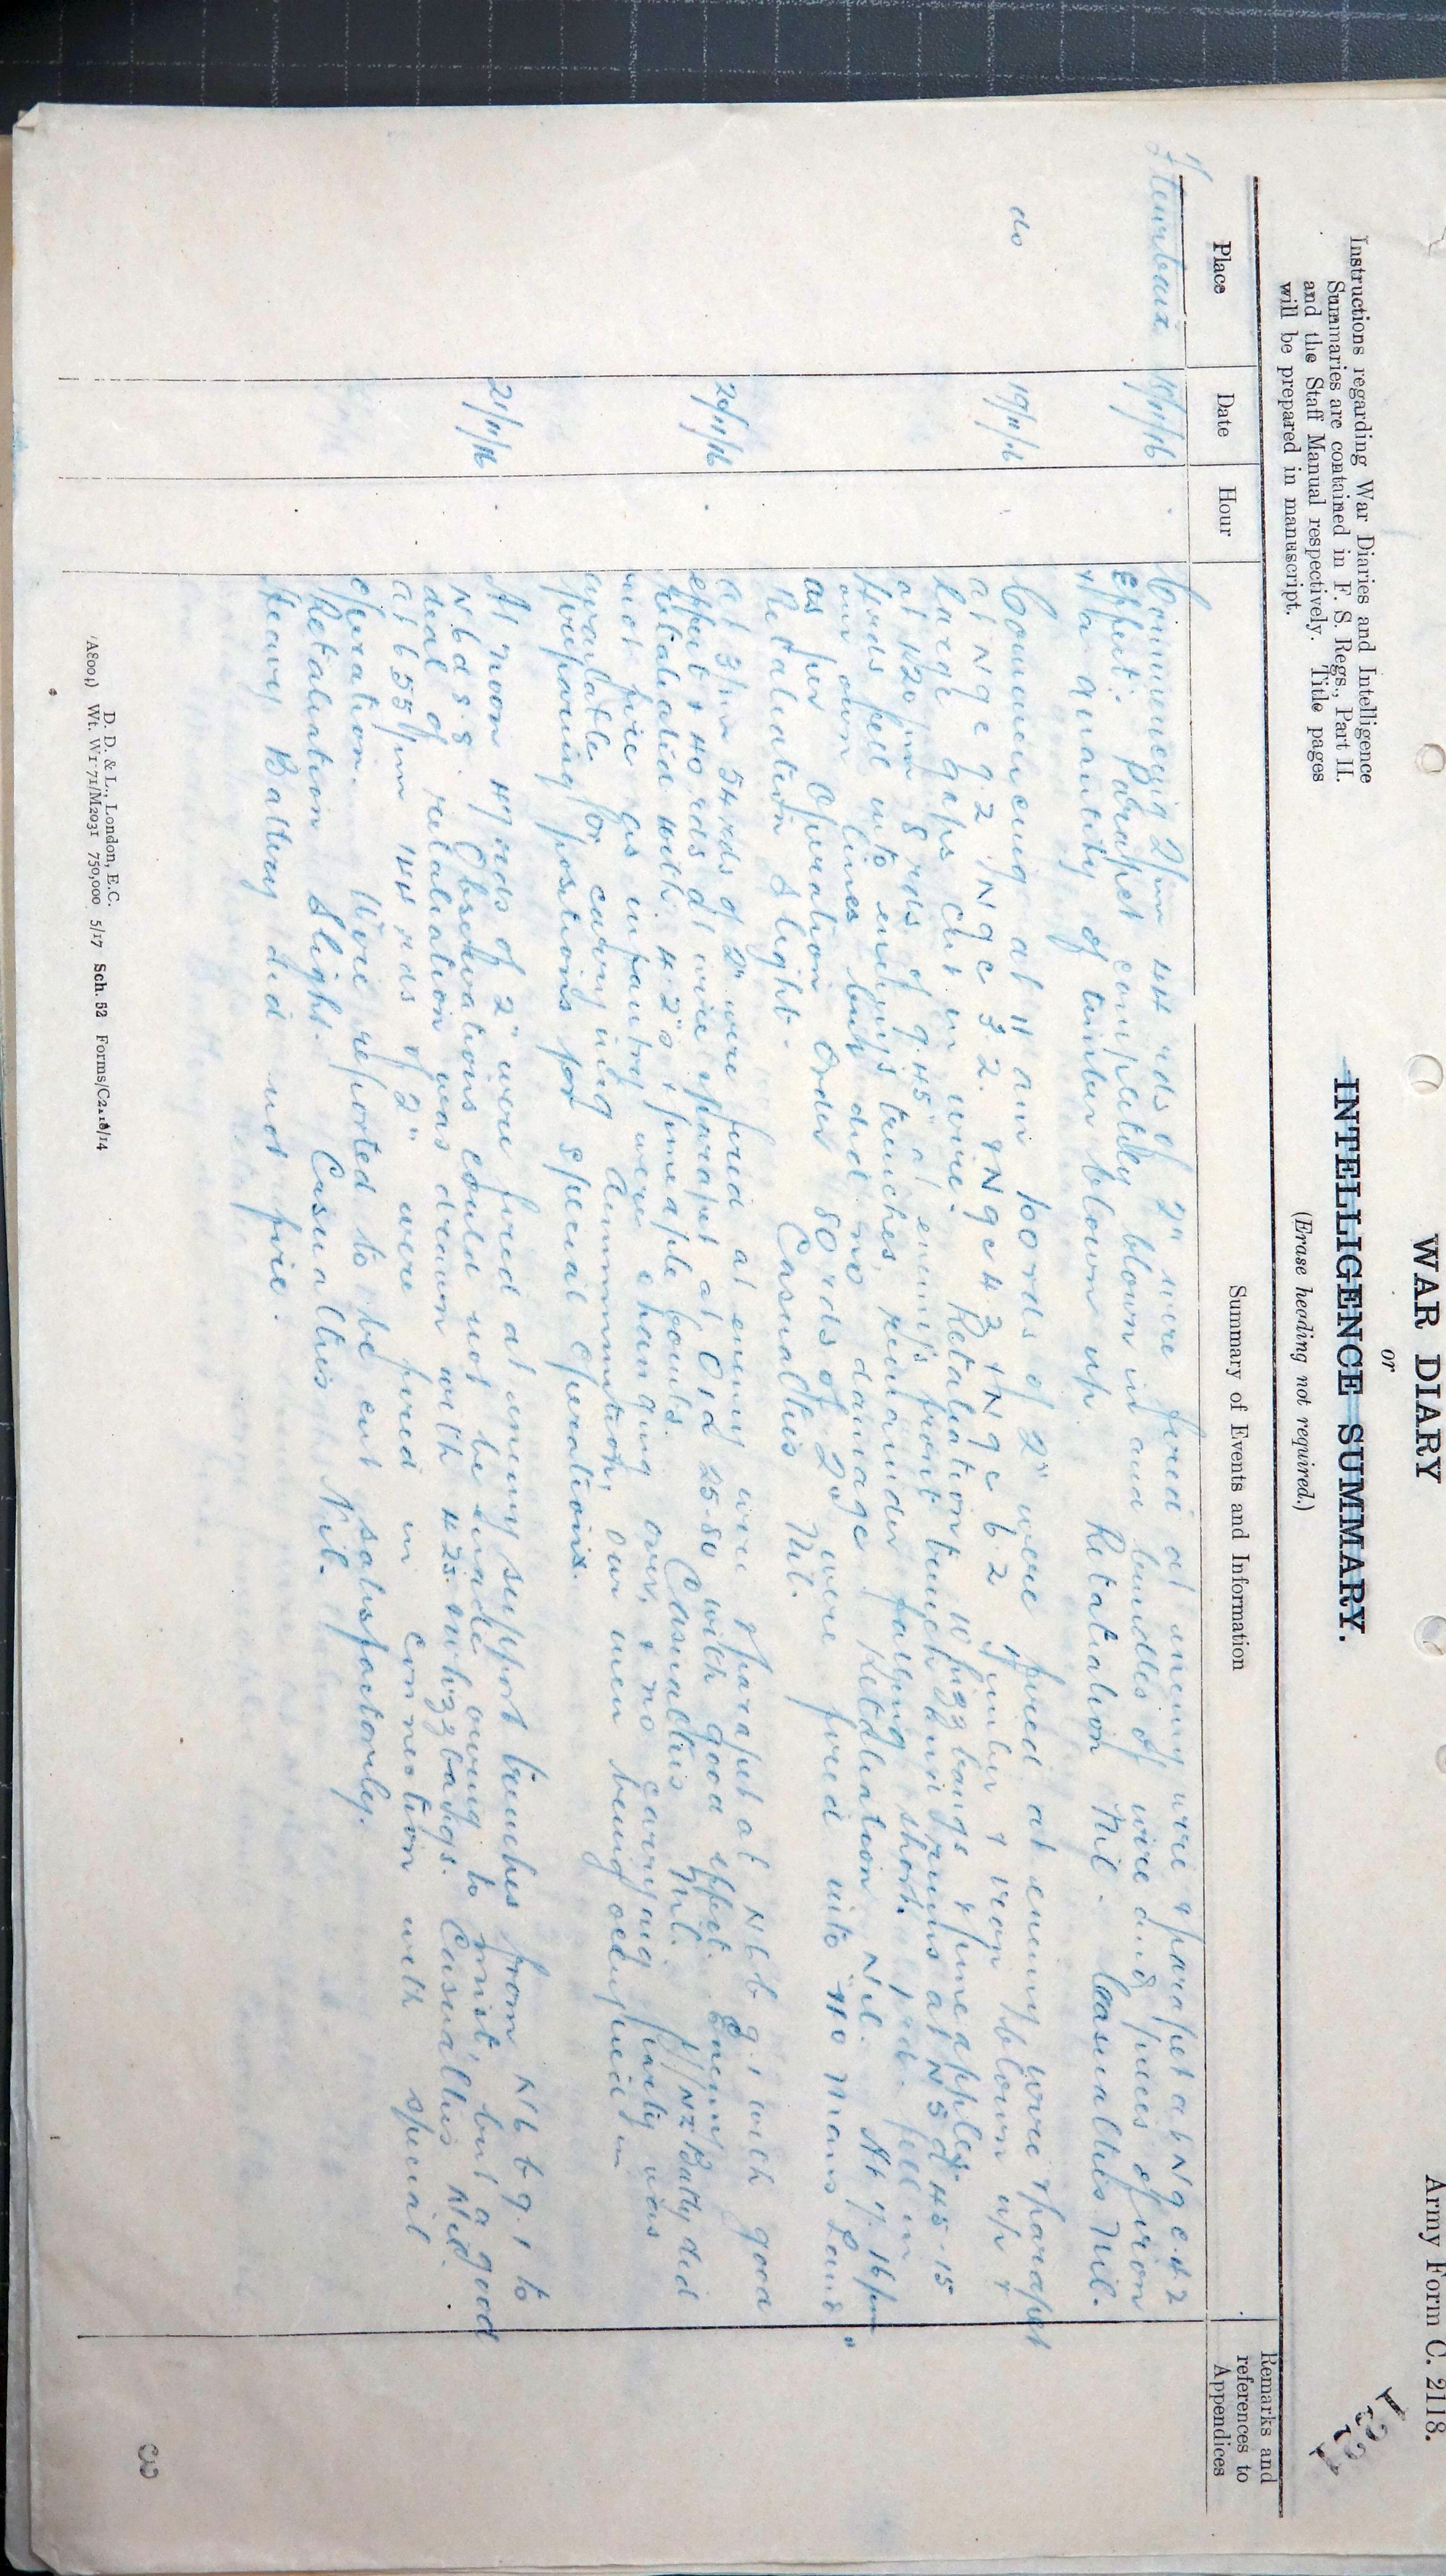 Army Form C. 2118.
WAR DIARY
or
INTELLIGENCE SUMMARY.
(Erase heading not required.)
Instructions regarding War Diaries and Intelligence
Summaries are contained in F. S. Regs., Part II.
and the Staff Manual respectively. Title pages
will be prepared in manuscript.
Place
Date
Hour
Summary of Events and Information
Remarks and
references to
Appendices
18/11/16
Commencing 2 pm 44 rds of 2" were fired at enemy wire & parapet at N 9 c. 4 2
Effect: Parapet completely blown in and bundles of wire and pieces of iron
& a quantity of timber blown up. Retaliation Nil. Casualties Nil.
do
19/11/16
Commencing at 11 am 100 rds of 2" were fired at enemy wire & parapet
at N 9 c 9.2 N 9 c 3.2. & N 9 c 4 3 & N 9 c 6 2 Timber & iron blown up &
Large gaps cut in wire. Retaliation whizz bangs & pineapples
at 1 20 pm 8 rds of 9.45" at enemy's front trench and mins at N 5 d 45.15
4 rds fell into enemy's trenches, remainder falling short. 1 rd. fell in
our own lines but did no damage Retaliation Nil. At 7.16 pm
as per Operation Order 80 rds of 2" were fired into "no mans Land"
Retaliation slight. Casualties Nil.
20/11/16
At 3 pm 54 rds of 2" were fired at enemy wire & parapet at N 6 b 9.1 with good
effect & 40 rds at wire & parapet at O 1 d 25.80 with good effect. Enemy
retaliated with 4.2"s & pineapple bombs. Casualties Nil. NZ Batty did
not fire as infantry were changing over, & no carrying party was
available for carrying ammunition, our men being occupied in
preparing positions for special operations.
21/11/16
At noon 47 rds of 2" were fired at enemy support trenches from N 6 b 9.1 to
N 6 d 8.8. Observations could not be made owing to mist, but a good
deal of retaliation was drawn with 4.2s. whizz bangs. Casualties Nil.
at 6 55 pm 144 rds of 2" were fired in connection with special
operation. Wire reported to be cut satisfactorily.
Retaliation Slight. Casualties Nil.
Heavy Battery did not fire.
D. D. & L., London, E.C.
Wt. W1 71/M2031 750,000 5/17 Sch. 52 Forms/C2118/14
3